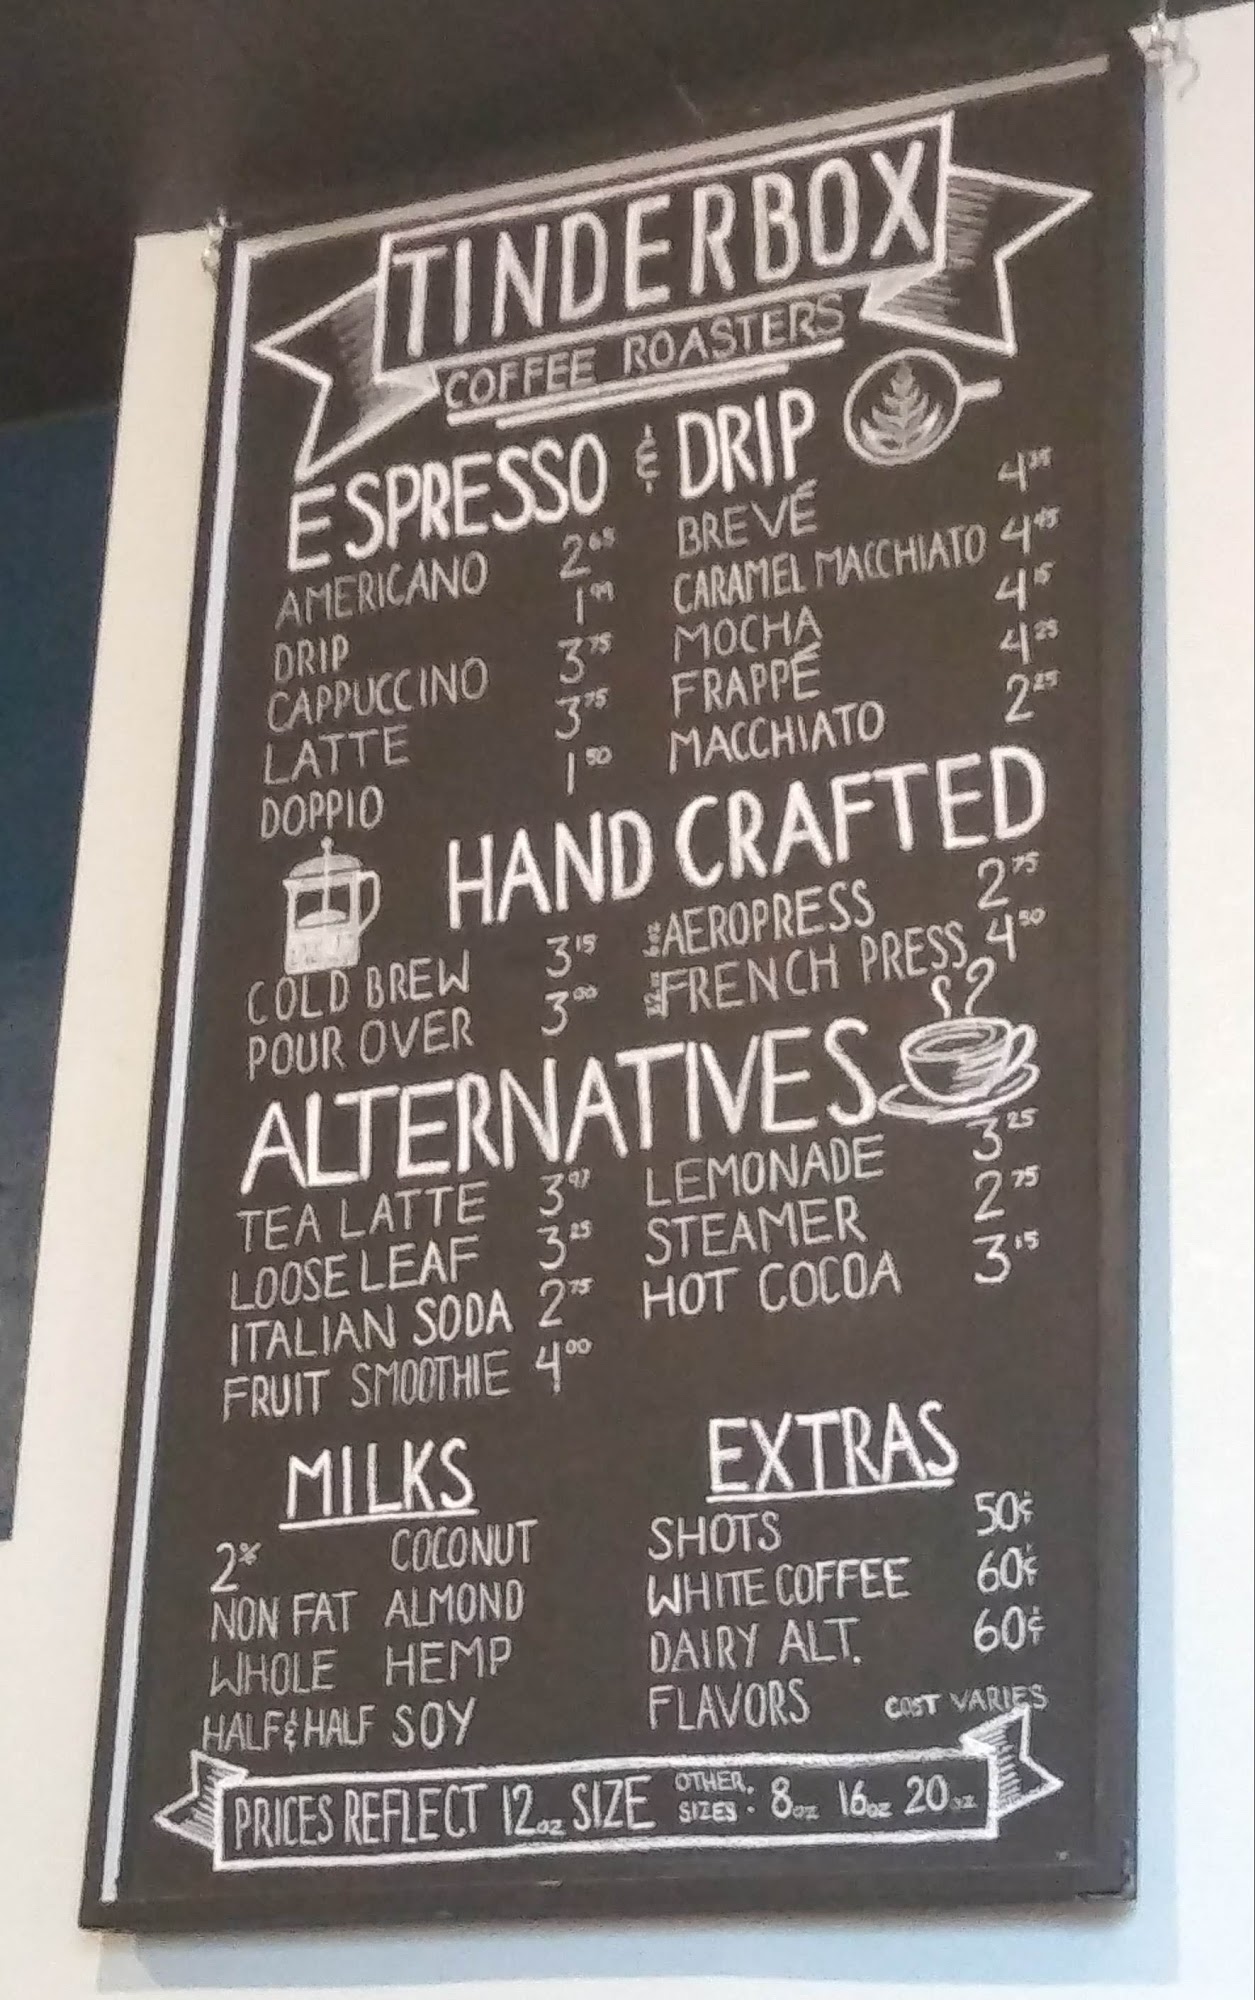 TINDERBOX
COFFEE ROASTERS
ESPRESSO & DRIP
AMERICANO 2.65
DRIP 1.99
CAPPUCCINO 3.75
LATTE 3.75
DOPPIO 1.50
BREVÉ 4.25
CARAMEL MACCHIATO 4.45
MOCHA 4.15
FRAPPÉ 4.25
MACCHIATO 2.25
HAND CRAFTED
COLD BREW 3.15
POUR OVER 3.00
6oz AEROPRESS 2.75
FRENCH PRESS 4.50
ALTERNATIVES
TEA LATTE 3.97
LOOSE LEAF 3.25
ITALIAN SODA 2.75
FRUIT SMOOTHIE 4.00
LEMONADE 3.25
STEAMER 2.75
HOT COCOA 3.15
MILKS
2% COCONUT
NON FAT ALMOND
WHOLE HEMP
HALF & HALF SOY
EXTRAS
SHOTS 50¢
WHITE COFFEE 60¢
DAIRY ALT. 60¢
FLAVORS COST VARIES
PRICES REFLECT 12oz SIZE OTHER SIZES: 8oz 16oz 20oz